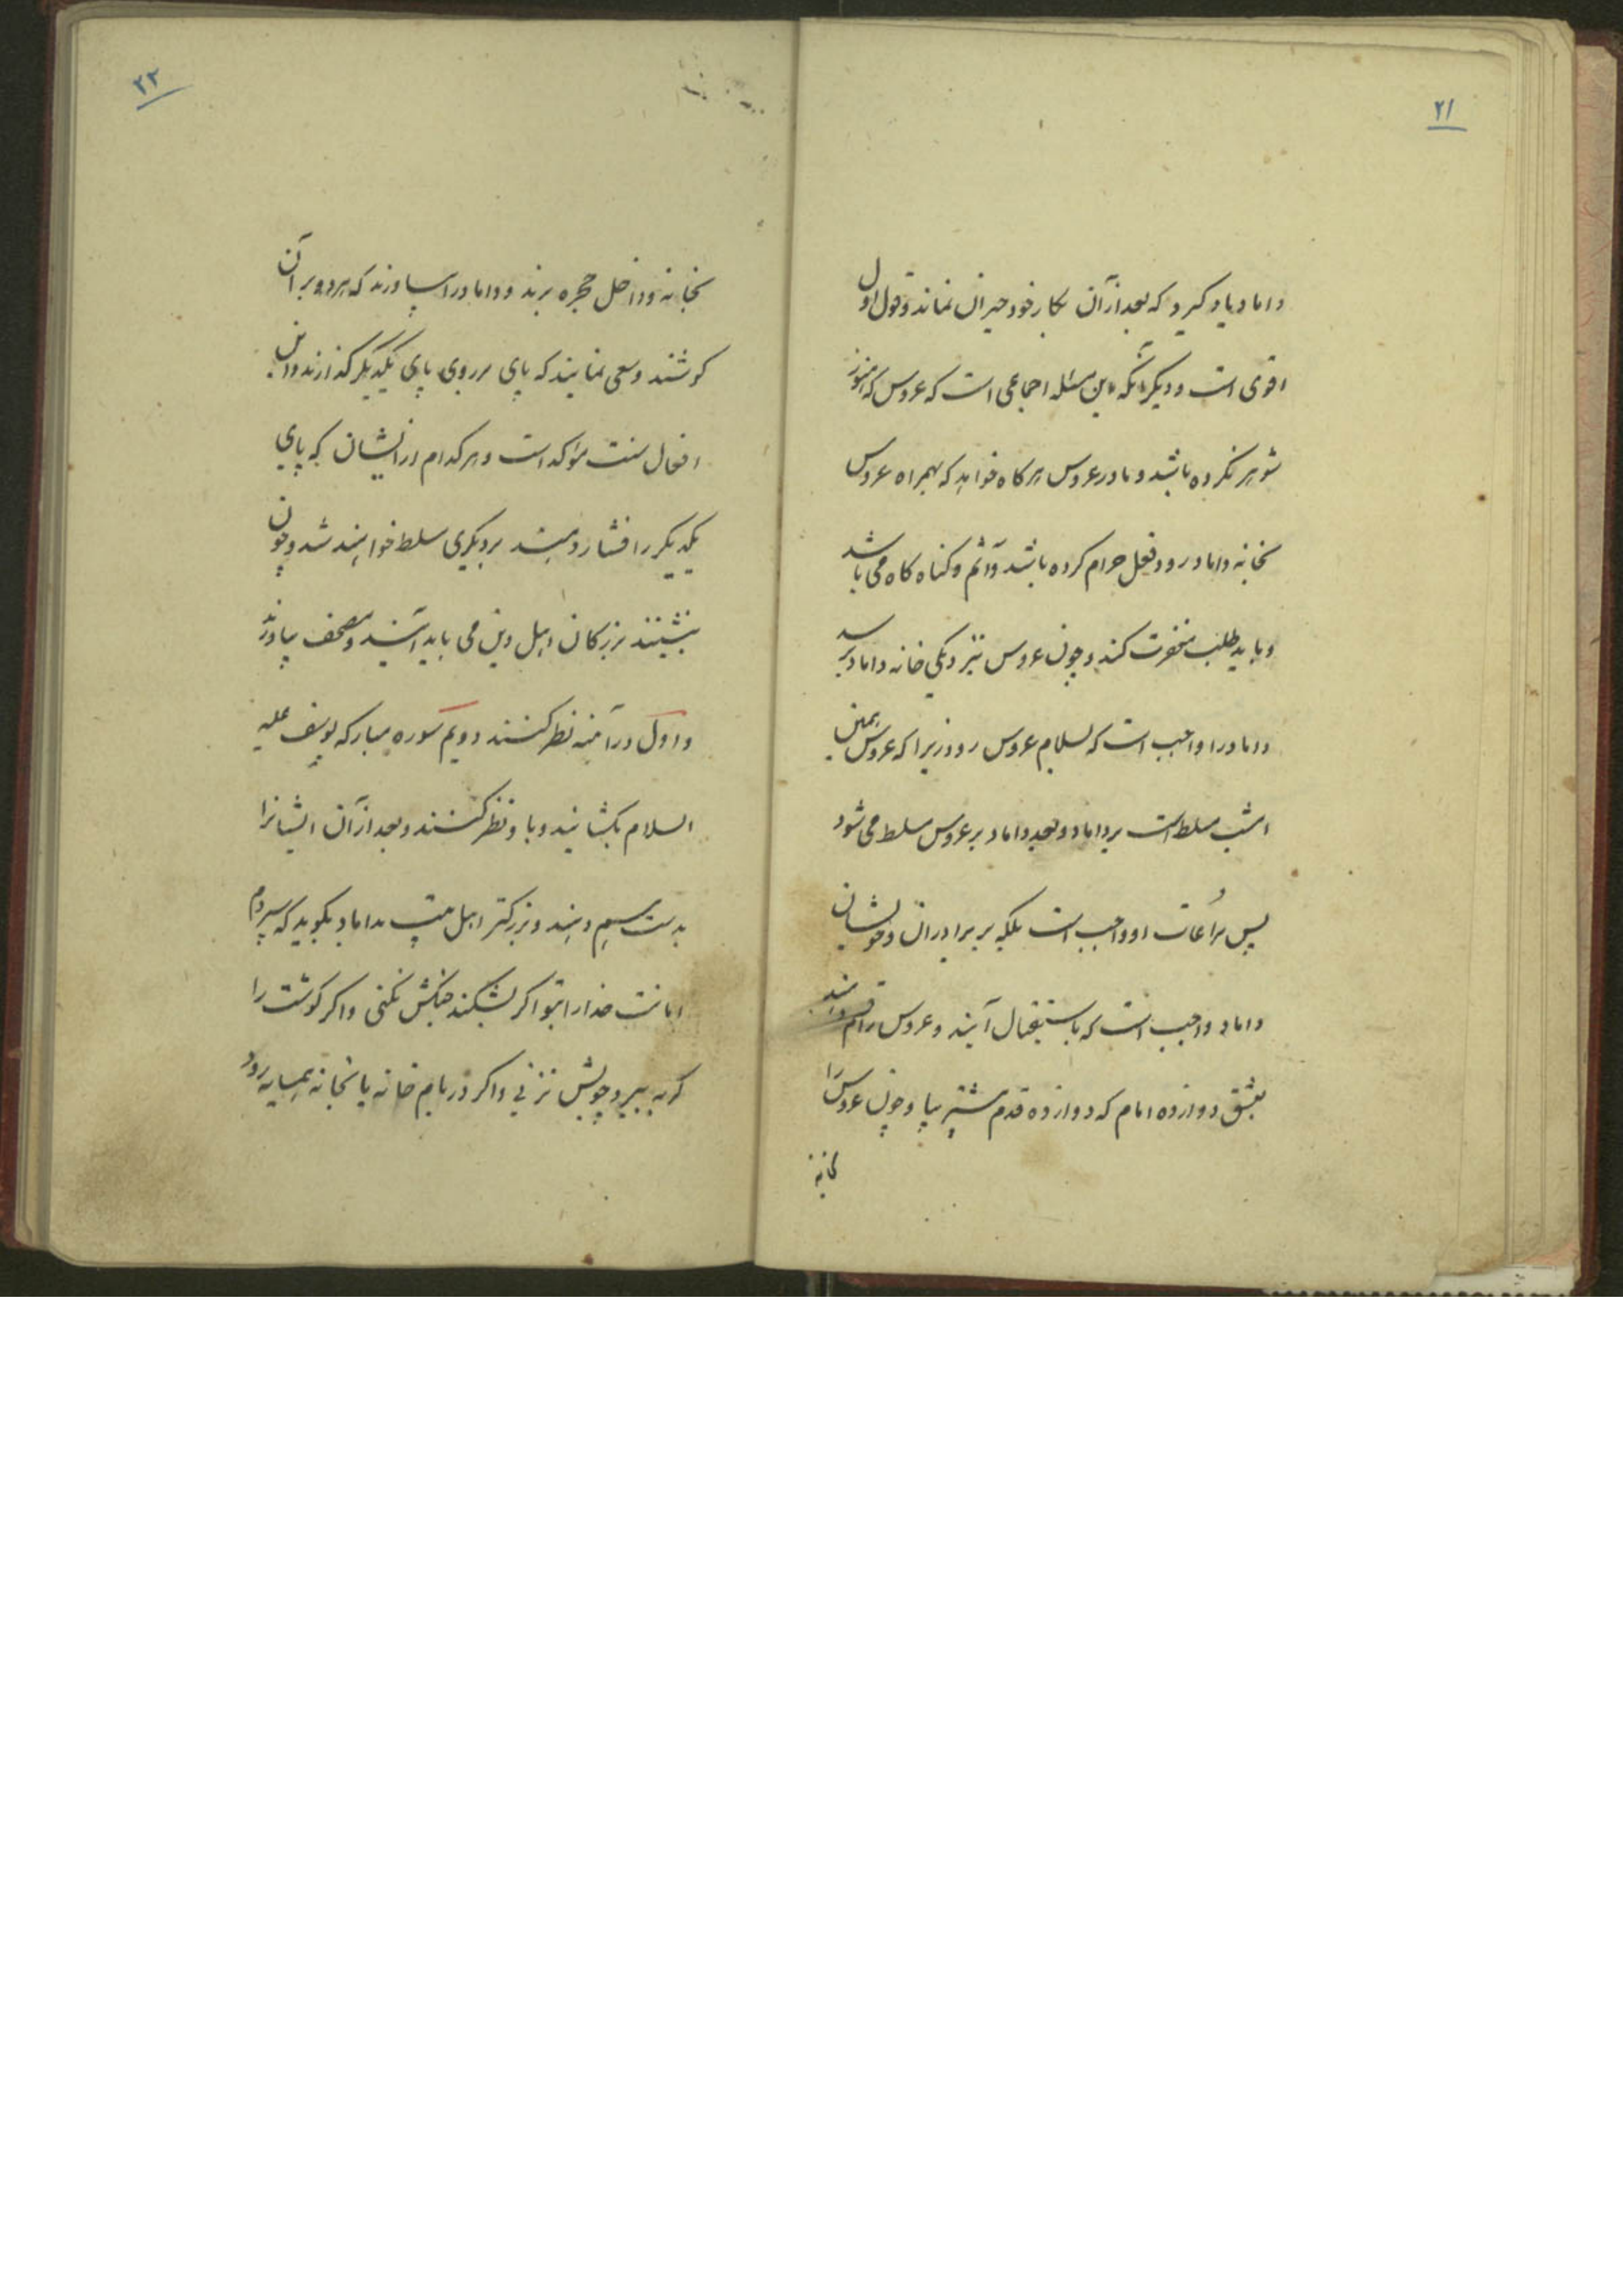 ۲۱
داماد یاد کیرد که بعد از آن بکار خود حیران نماند و قول اول
اقوی است و دیکر آنکه این مسئله اجماعی است که عروس که هنوز
شوهر نکرده باشد و مادر عروس هرکاه خواهد که بهمراه عروس
بخانه داماد رود فعل حرام کرده باشد و آثم و کناه کاه می باشد
و باید طلب مغفرت کند و چون عروس نزدیکی خانه داماد برسد
داماد را واجب است که بسلام عروس رود زیرا که عروس همین
امشب مسلط است بر داماد و بعد داماد بر عروس مسلط می شود
پس مراعات او واجب است بلکه بر برادران و خویشان
داماد واجب است که باستقبال آیند و عروس را قسم دهند
بعشق دوازده امام که دوازده قدم پیشتر بیا و چون عروس را
بخانه
۲۲
بخانه و داخل حجره برند و داماد را بیاورند که هر دو بر آن
کوشند و سعی نمایند که پای بر روی پای یکدیکر کذارند و این
افعال سنت مؤکد است و هرکدام از ایشان که پای
یکدیکر را فشار دهند بر دیکری مسلط خواهند شد و چون
بنشینند بزرکان اهل دین می باید آیند و مصحف بیاورند
و اول در آینه نظر کنند دویم سوره مبارکه یوسف علیه
السلام بکشایند و باو نظر کنند و بعد از آن ایشانرا
بدست هم دهند و بزرکتر اهل بیت بداماد بکوید که سپردم
امانت خدا را بتو اکر بشکند جنکش نکنی و اکر کوشت را
کربه ببرد چوبش نزنی و اکر در بام خانه یا بخانه همسایه رود